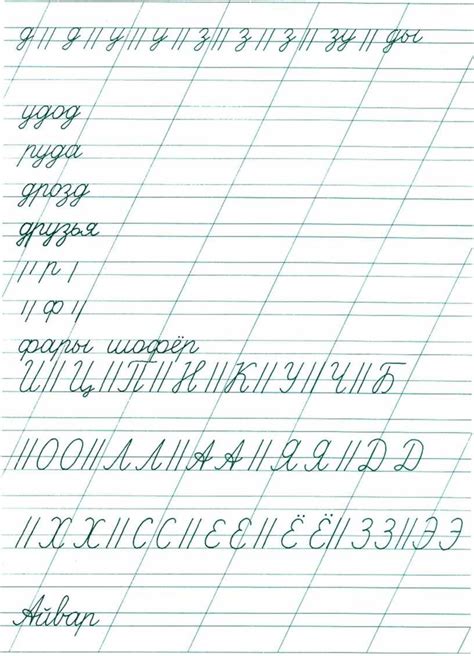 д || д || у || у || з || з || з || зу || ды
удод
руда
дрозд
друзья
|| р |
|| ф ||
фары шофёр
И || Ц || П || Н || К || У || Ч || Б
|| О О || Л Л || А А || Я Я || Д Д
|| Х Х || С С || Е Е || Ё Ё || З З || Э Э
Айвар